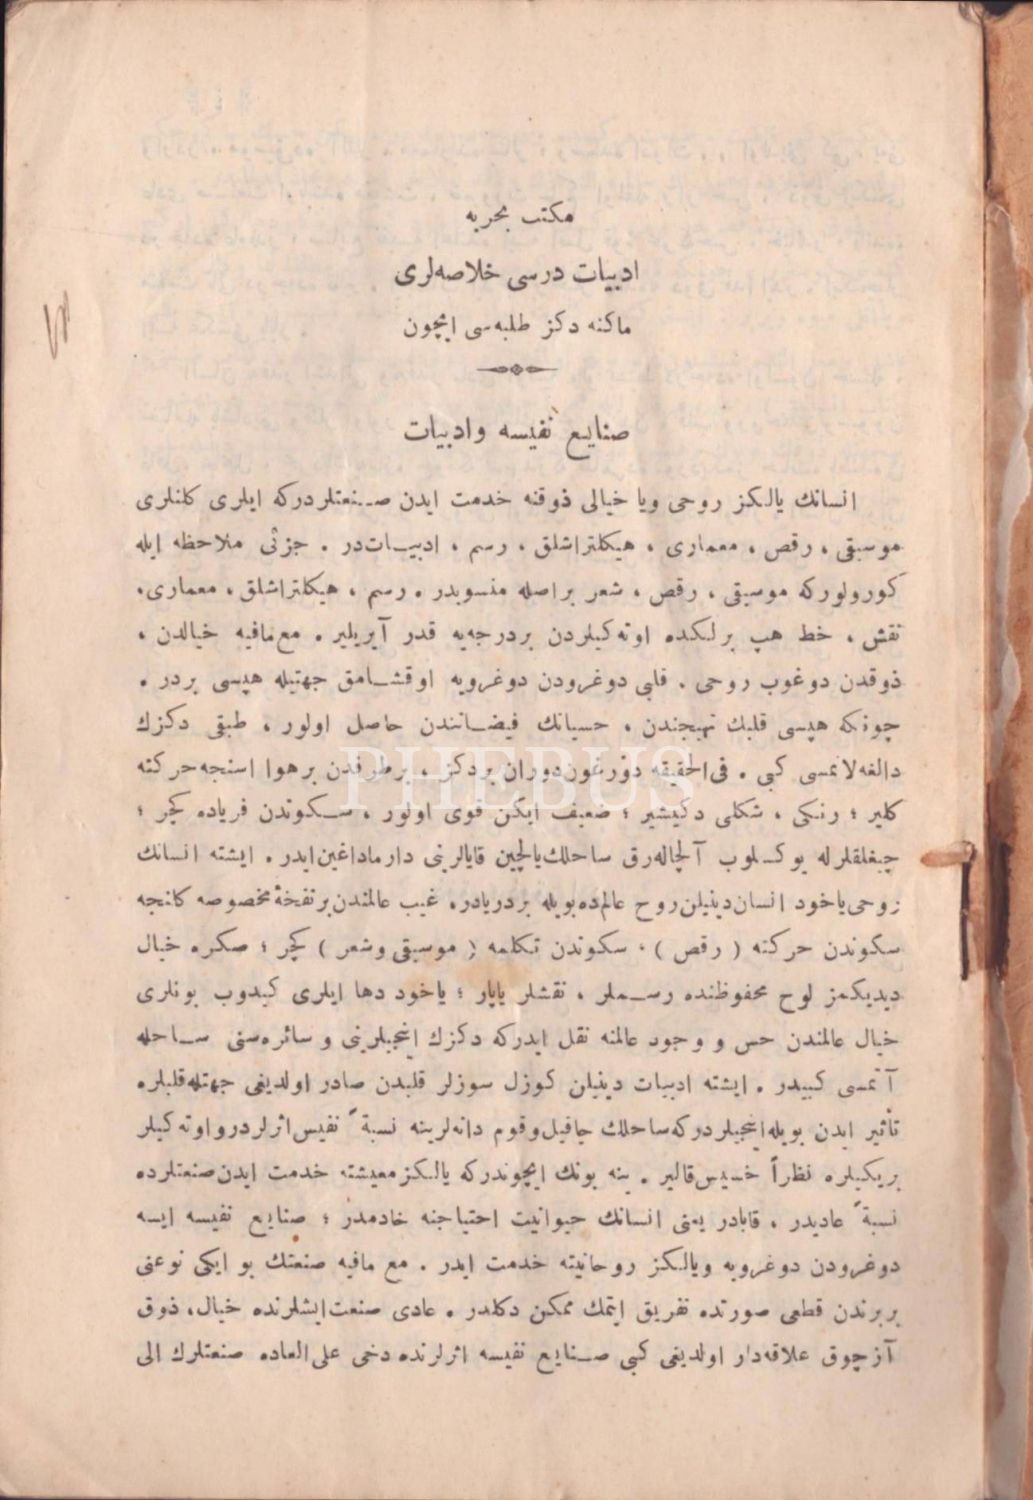 مكتب بحريه
ادبيات درسى خلاصه‌لرى
ماكنه دكز طلبه‌سى ايچون
صنايع نفيسه وادبيات
انسانك يالكز روحى ويا خيالى ذوقنه خدمت ايدن صنعتلردركه ايلرى كلنلرى
موسيقى ، رقص ، معمارى ، هيكلتراشلق ، رسم ، ادبيات‌در . جزئى ملاحظه ايله
كورولوركه موسيقى ، رقص ، شعر براصله منسوبدر . رسم ، هيكلتراشلق ، معمارى،
نقش ، خط هپ برلكده اوته‌كيلردن بردرجه‌يه قدر آيريلير . مع‌مافيه خيالدن ،
ذوقدن دوغوب روحى . قلبى دوغرودن دوغرويه اوقشامق جهتيله هپسى بردر .
چونكه هپسى قلبك تهيجندن ، حسياتك فيضانندن حاصل اولور ، طبقى دكزك
دالغه‌لانمسى كبى . فى‌الحقيقه دورغون‌دوران بردكز ، برطرفدن برهوا اسنجه‌حركته
PHEBUS
كلير ؛ رنكى ، شكلى دكيشير ؛ ضعيف ايكن قوى اولور ، سكوتدن فرياده كچر ؛
چيغلقلرله يوكسلوب آلچاله‌رق ساحلك‌يالچين قايالرينى دارماداغين‌ايدر . ايشته انسانك
روحى‌ياخود انسان‌دينيلن‌روح عالم‌ده‌بويله بردريادر. غيب عالمندن‌برنفخۀمخصوصه كلنجه
سكوندن حركته ( رقص ) ، سكوتدن تكلمه ( موسيقى وشعر ) كچر ؛ صكره خيال
ديديكمز لوح محفوظنده رسملر ، نقشلر ياپار ؛ ياخود دها ايلرى كيدوب بونلرى
خيال عالمندن حس و وجود عالمنه نقل ايدركه دكزك اينجيلرينى و سائره‌سنى ساحله
آتمسى كبيدر . ايشته ادبيات دينيلن كوزل سوزلر قلبدن صادر اولديغى جهتله‌قلبلره
تأثير ايدن بويله‌اينجيلردركه‌ساحلك چاقيل‌وقوم دانه‌لرينه نسبةً نفيس‌اثرلردرواوته‌كيلر
بريكيلره نظراً خسيس‌قالير . ينه بونك ايچوندركه يالكزمعيشته خدمت ايدن‌صنعتلرده
نسبةً عاديدر ، قابادر يعنى انسانك حيوانيت احتياجنه خادمدر ؛ صنايع نفيسه ايسه
دوغرودن دوغرويه ويالكز روحانيته خدمت ايدر . مع مافيه صنعتك بو ايكى نوعنى
بربرندن قطعى صورتده تفريق ايتمك ممكن دكلدر . عادى صنعت‌ايشلرنده خيال، ذوق
آزچوق علاقه‌دار اولديغى كبى صنايع نفيسه اثرلرنده دخى على‌العاده صنعتلرك الى